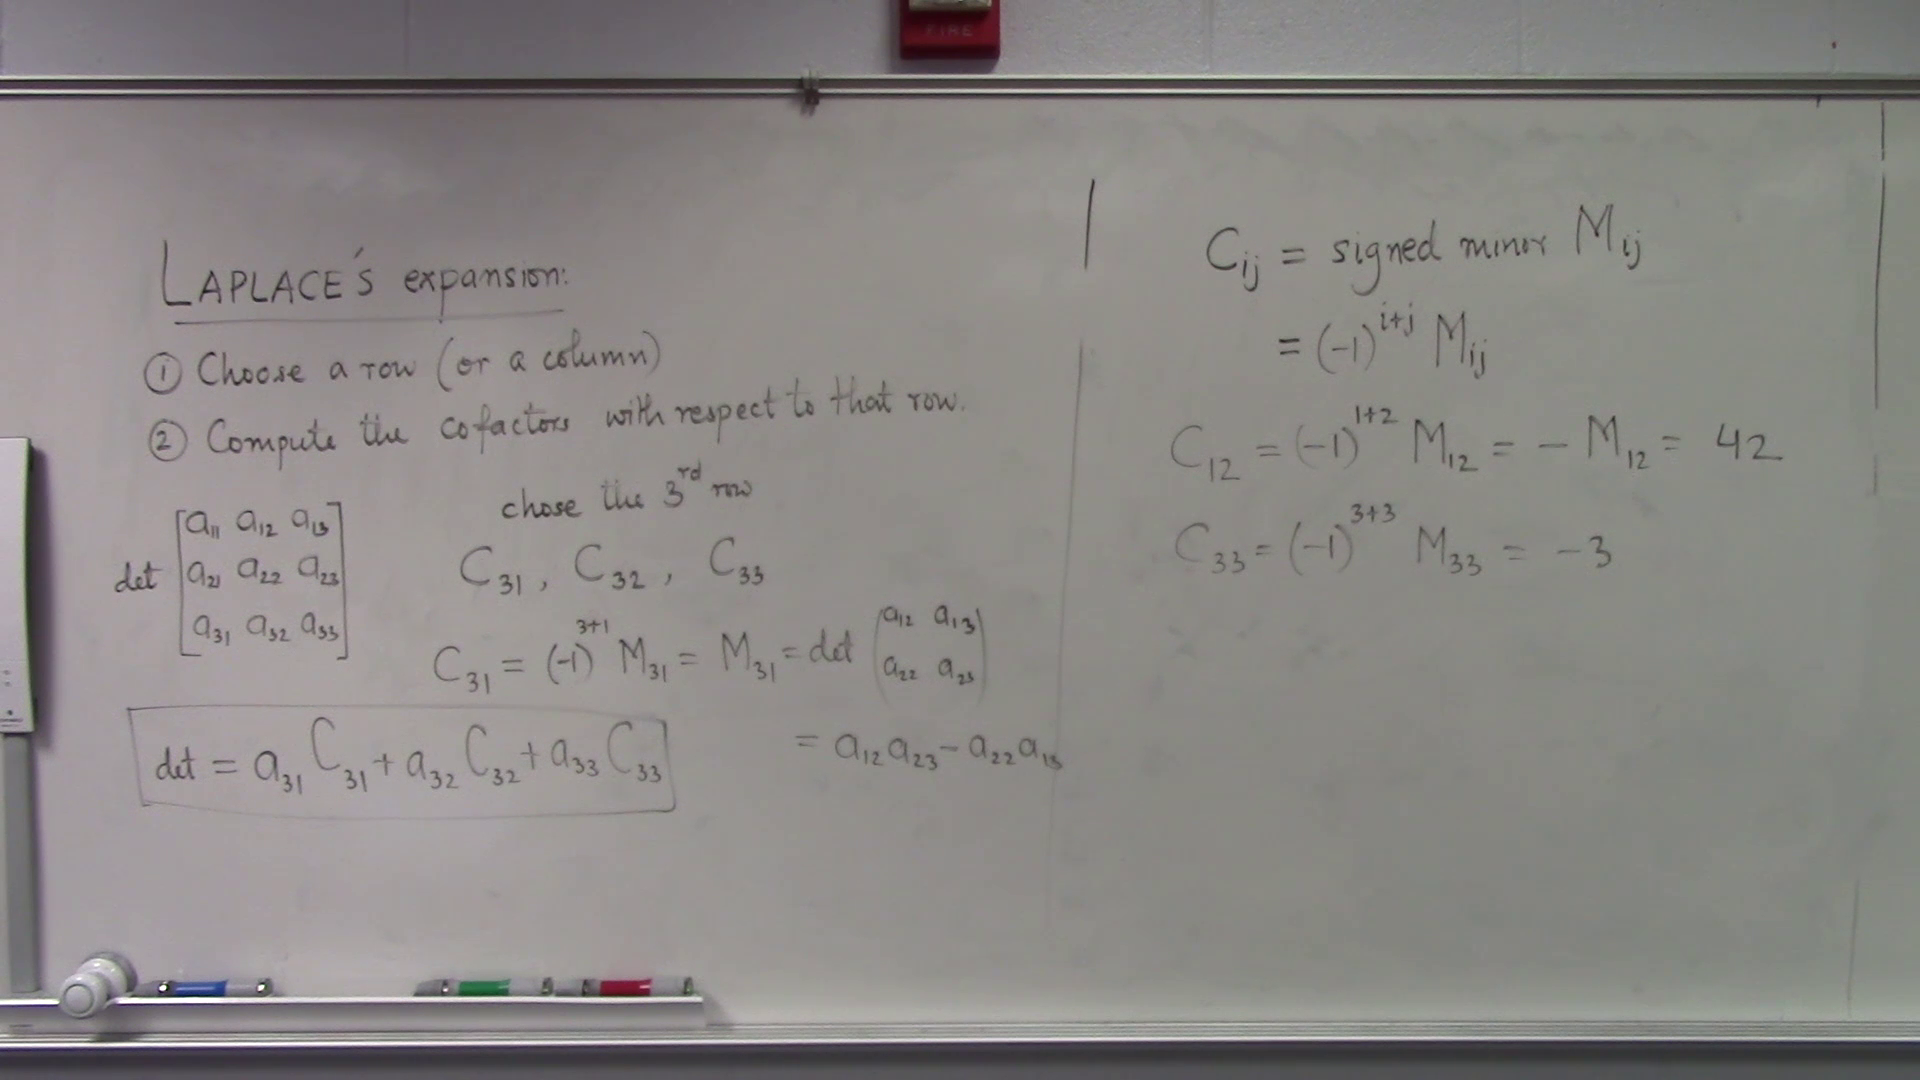 FIRE
LAPLACE'S expansion:
① Choose a row (or a column)
② Compute the cofactors with respect to that row.
chose the 3rd row
det [a11 a12 a13
a21 a22 a23
a31 a32 a33]
C31, C32, C33
C31 = (-1)^3+1 M31 = M31 = det (a12 a13
a22 a23)
= a12 a23 - a22 a13
det = a31 C31 + a32 C32 + a33 C33
Cij = signed minor Mij
= (-1)^i+j Mij
C12 = (-1)^1+2 M12 = - M12 = 42
C33 = (-1)^3+3 M33 = -3